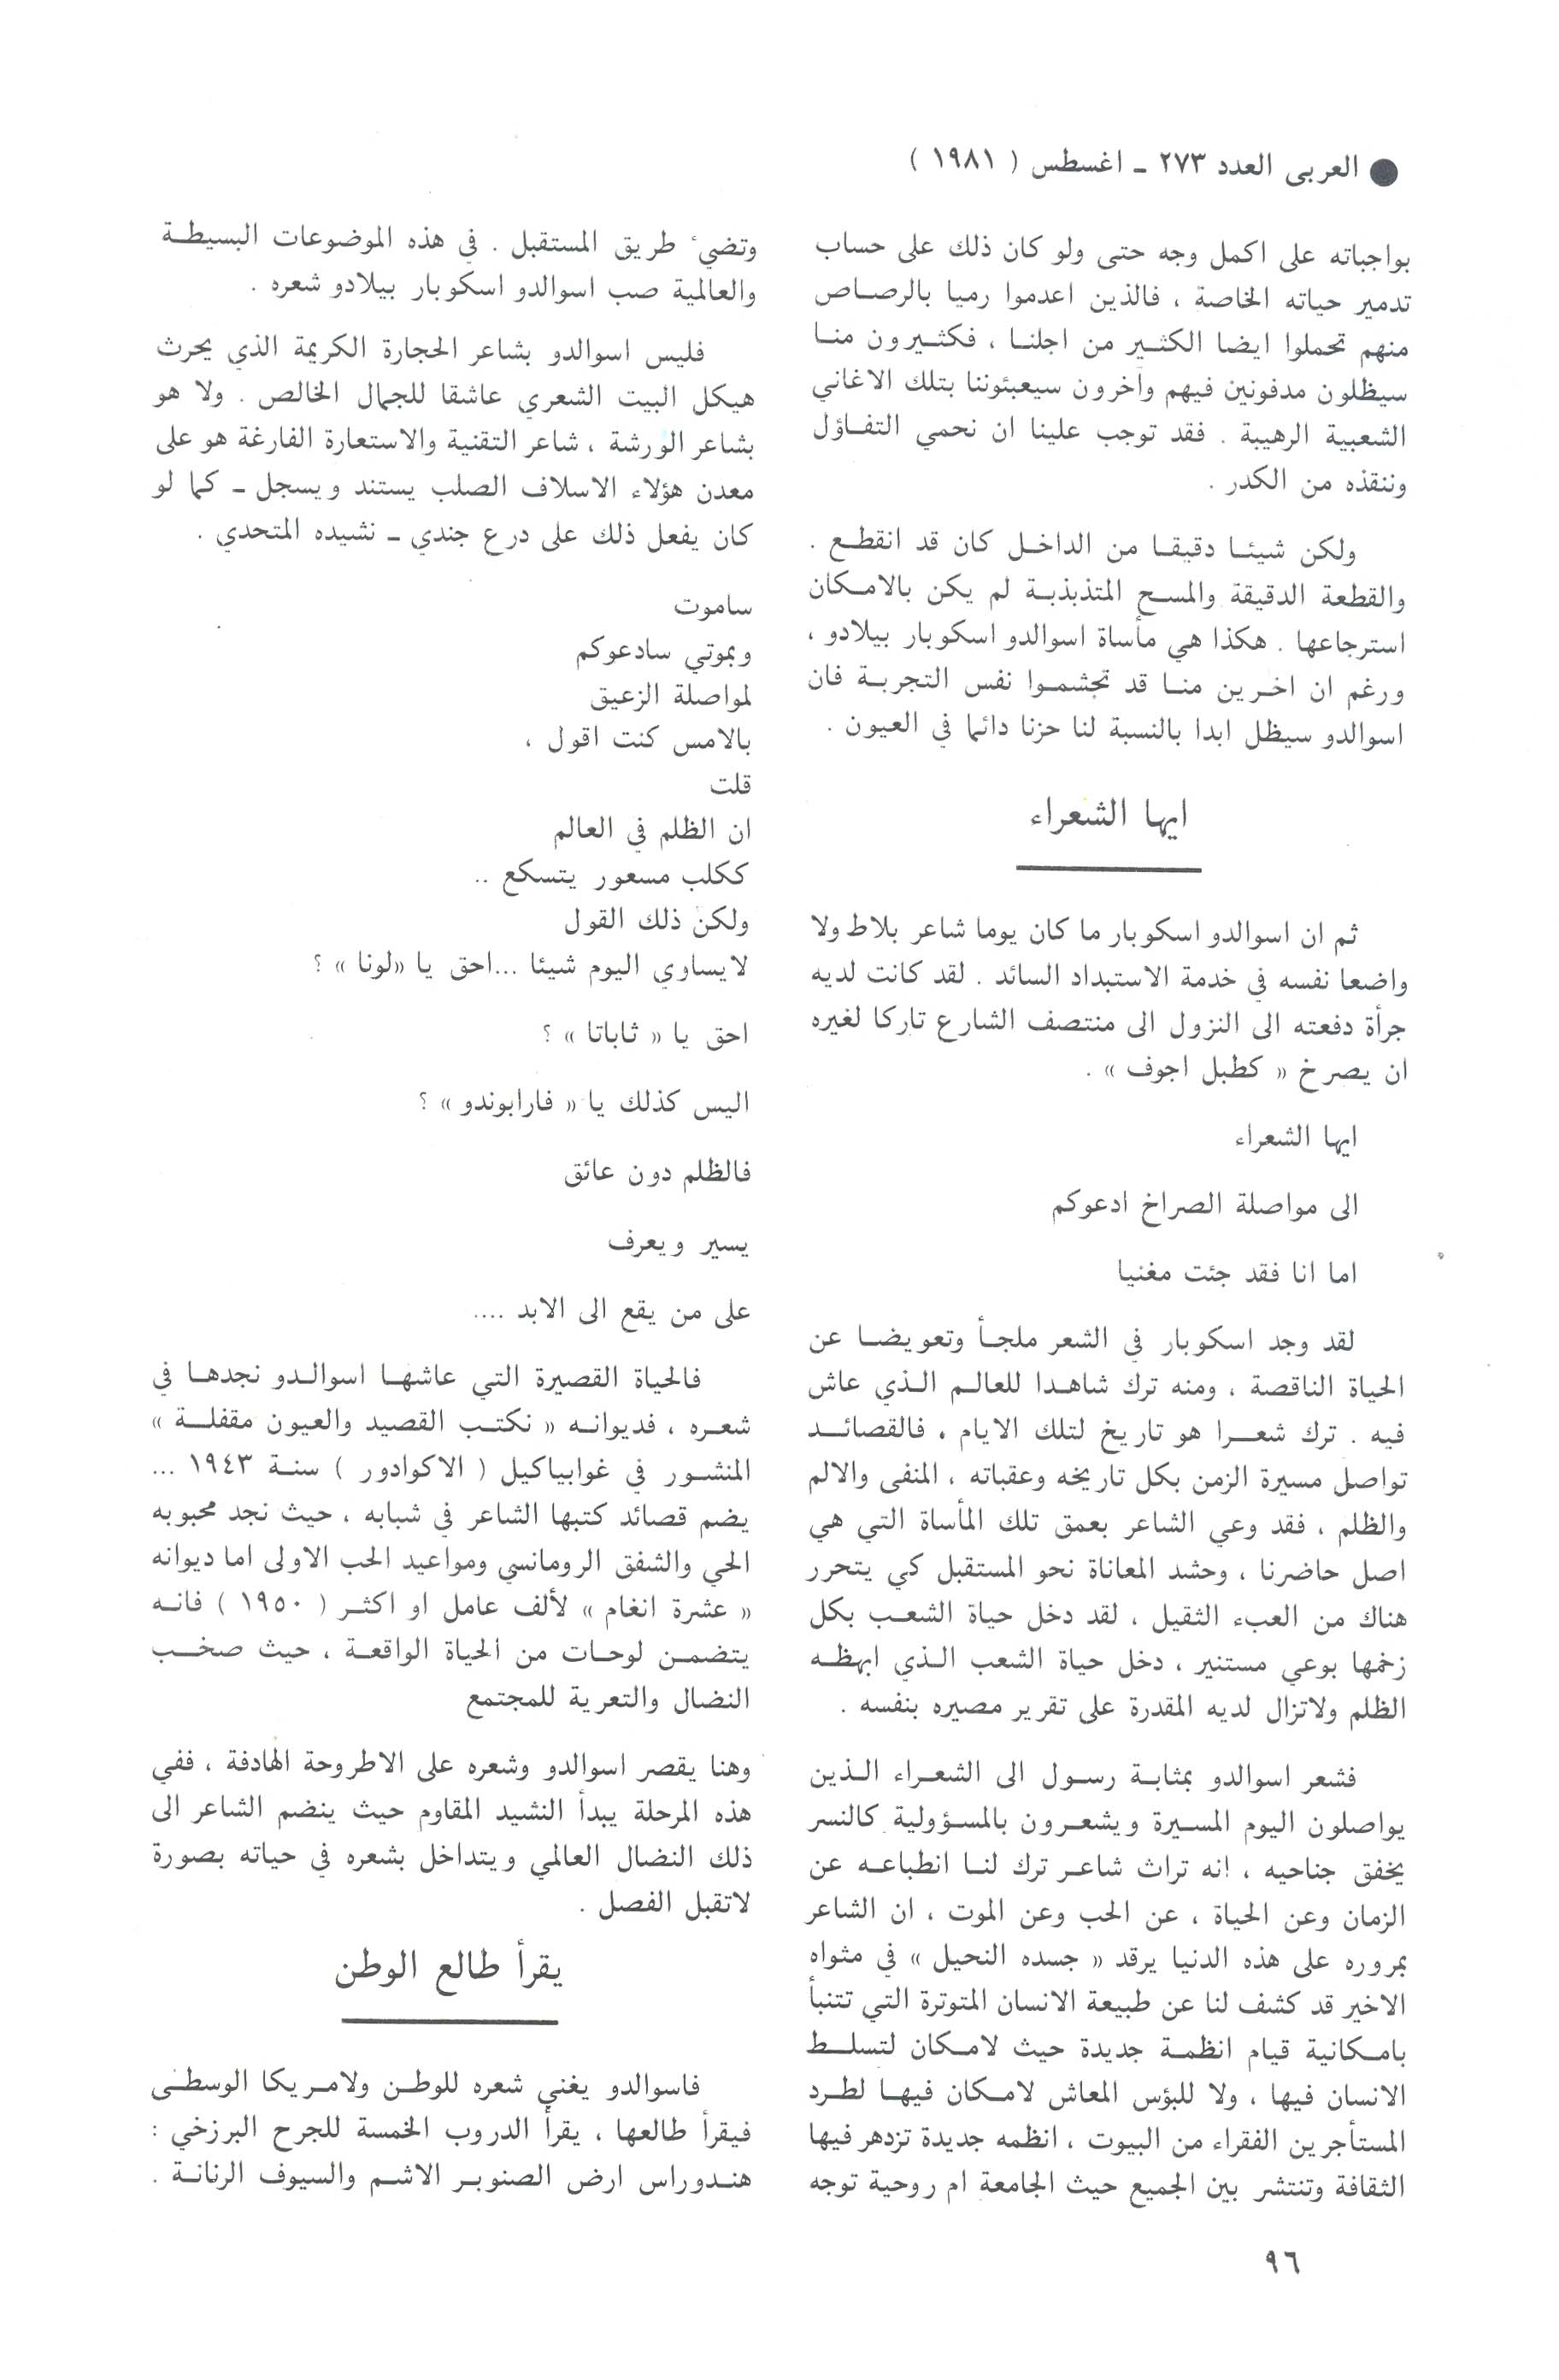 ● العربى العدد ٢٧٣ ـ اغسطس ( ١٩٨١ )
بواجباته على اكمل وجه حتى ولو كان ذلك على حساب
تدمير حياته الخاصة ، فالذين اعدموا رميا بالرصاص
منهم تحملوا ايضا الكثير من اجلنا ، فكثيرون منا
سيظلون مدفونين فيهم وآخرون سيعبئوننا بتلك الاغاني
الشعبية الرهيبة . فقد توجب علينا ان نحمي التفاؤل
وننقذه من الكدر .
ولكن شيئا دقيقا من الداخل كان قد انقطع .
والقطعة الدقيقة والمسح المتذبذبة لم يكن بالامكان
استرجاعها . هكذا هي مأساة اسوالدو اسكوبار بيلادو ،
ورغم ان اخرين منا قد تجشموا نفس التجربة فان
اسوالدو سيظل ابدا بالنسبة لنا حزنا دائما في العيون .
ايها الشعراء
ثم ان اسوالدو اسكوبار ما كان يوما شاعر بلاط ولا
واضعا نفسه في خدمة الاستبداد السائد . لقد كانت لديه
جرأة دفعته الى النزول الى منتصف الشارع تاركا لغيره
ان يصرخ « كطبل اجوف » .
ايها الشعراء
الى مواصلة الصراخ ادعوكم
اما انا فقد جئت مغنيا
لقد وجد اسكوبار في الشعر ملجأ وتعويضا عن
الحياة الناقصة ، ومنه ترك شاهدا للعالم الذي عاش
فيه . ترك شعرا هو تاريخ لتلك الايام ، فالقصائد
تواصل مسيرة الزمن بكل تاريخه وعقباته ، المنفى والالم
والظلم ، فقد وعي الشاعر بعمق تلك المأساة التي هي
اصل حاضرنا ، وحشد المعاناة نحو المستقبل كي يتحرر
هناك من العبء الثقيل ، لقد دخل حياة الشعب بكل
زخمها بوعي مستنير ، دخل حياة الشعب الذي ابهظه
الظلم ولاتزال لديه المقدرة على تقرير مصيره بنفسه .
فشعر اسوالدو بمثابة رسول الى الشعراء الذين
يواصلون اليوم المسيرة ويشعرون بالمسؤولية كالنسر
يخفق جناحيه ، انه تراث شاعر ترك لنا انطباعه عن
الزمان وعن الحياة ، عن الحب وعن الموت ، ان الشاعر
بمروره على هذه الدنيا يرقد « جسده النحيل » في مثواه
الاخير قد كشف لنا عن طبيعة الانسان المتوترة التي تتنبأ
بامكانية قيام انظمة جديدة حيث لامكان لتسلط
الانسان فيها ، ولا للبؤس المعاش لامكان فيها لطرد
المستأجرين الفقراء من البيوت ، انظمه جديدة تزدهر فيها
الثقافة وتنتشر بين الجميع حيث الجامعة ام روحية توجه
وتضيء طريق المستقبل . في هذه الموضوعات البسيطة
والعالمية صب اسوالدو اسكوبار بيلادو شعره .
فليس اسوالدو بشاعر الحجارة الكريمة الذي يحرث
هيكل البيت الشعري عاشقا للجمال الخالص . ولا هو
بشاعر الورشة ، شاعر التقنية والاستعارة الفارغة هو على
معدن هؤلاء الاسلاف الصلب يستند ويسجل ـ كما لو
كان يفعل ذلك على درع جندي ـ نشيده المتحدي .
ساموت
وبموتي سادعوكم
لمواصلة الزعيق
بالامس كنت اقول ،
قلت
ان الظلم في العالم
ككلب مسعور يتسكع ..
ولكن ذلك القول
لايساوي اليوم شيئا ...احق يا «لونا » ؟
احق يا « ثاباتا » ؟
اليس كذلك يا « فارابوندو » ؟
فالظلم دون عائق
يسير ويعرف
على من يقع الى الابد ....
فالحياة القصيرة التي عاشها اسوالدو نجدها في
شعره ، فديوانه « نكتب القصيد والعيون مقفلة »
المنشور في غوابياكيل ( الاكوادور ) سنة ١٩٤٣ ...
يضم قصائد كتبها الشاعر في شبابه ، حيث نجد محبوبه
الحي والشفق الرومانسي ومواعيد الحب الاولى اما ديوانه
« عشرة انغام » لألف عامل او اكثر ( ١٩٥٠ ) فانه
يتضمن لوحات من الحياة الواقعة ، حيث صخب
النضال والتعرية للمجتمع
وهنا يقصر اسوالدو وشعره على الاطروحة الهادفة ، ففي
هذه المرحلة يبدأ النشيد المقاوم حيث ينضم الشاعر الى
ذلك النضال العالمي ويتداخل بشعره في حياته بصورة
لاتقبل الفصل .
يقرأ طالع الوطن
فاسوالدو يغني شعره للوطن ولامريكا الوسطى
فيقرأ طالعها ، يقرأ الدروب الخمسة للجرح البرزخي :
هندوراس ارض الصنوبر الاشم والسيوف الرنانة .
٩٦